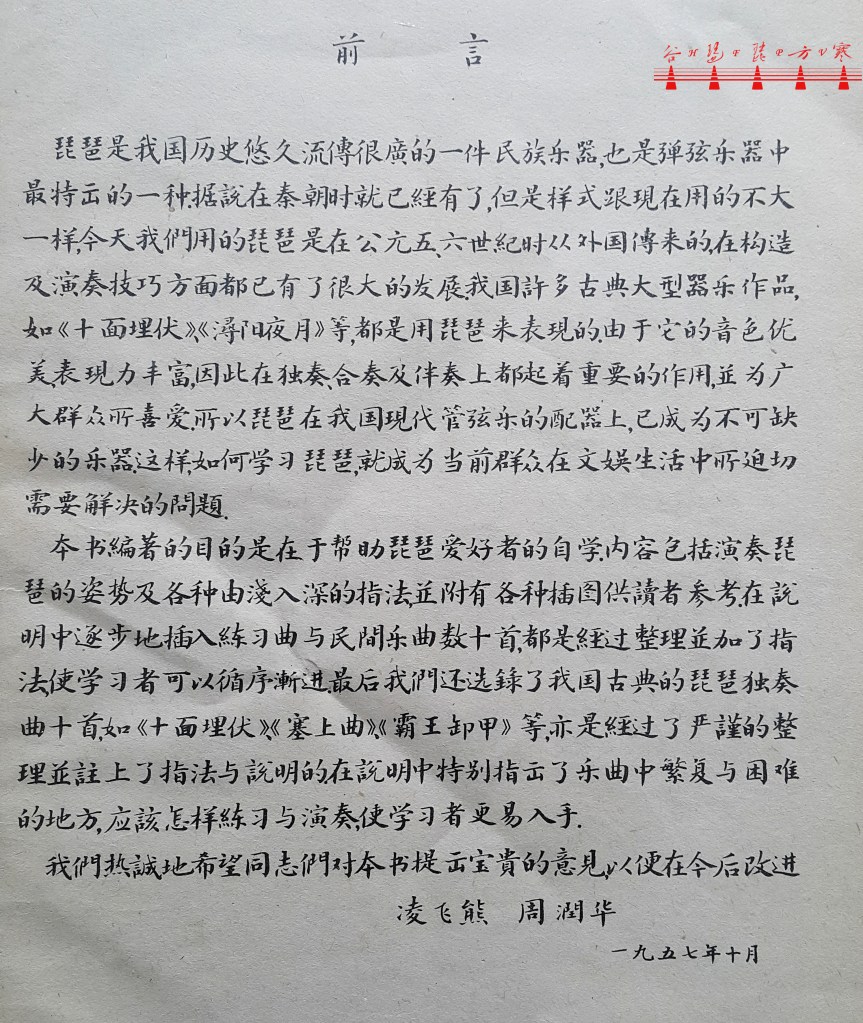 前言
谷琵琶方寒
琵琶是我国历史悠久流傳很廣的一件民族乐器,也是弹弦乐器中
最特出的一种.据說在秦朝时就已經有了,但是样式跟現在用的不大
一样,今天我們用的琵琶是在公元五、六世紀时从外国傳来的,在构造
及演奏技巧方面都已有了很大的发展.我国許多古典大型器乐作品,
如《十面埋伏》、《潯阳夜月》等,都是用琵琶来表現的.由于它的音色优
美,表現力丰富,因此在独奏、合奏及伴奏上都起着重要的作用,並为广
大群众所喜爱.所以琵琶在我国現代管弦乐的配器上,已成为不可缺
少的乐器.这样,如何学习琵琶,就成为当前群众在文娱生活中所迫切
需要解决的問題.
本书編著的目的是在于帮助琵琶爱好者的自学.内容包括演奏琵
琶的姿势及各种由淺入深的指法,並附有各种插图供讀者参考.在說
明中逐步地插入練习曲与民間乐曲数十首,都是經过整理並加了指
法,使学习者可以循序漸进.最后我們还选錄了我国古典的琵琶独奏
曲十首,如《十面埋伏》、《塞上曲》、《霸王卸甲》等,亦是經过了严謹的整
理並註上了指法与說明的,在說明中特别指出了乐曲中繁复与困难
的地方,应該怎样練习与演奏,使学习者更易入手.
我們热誠地希望同志們对本书提出宝貴的意見,以便在今后改进
凌飞熊 周潤华
一九五七年十月